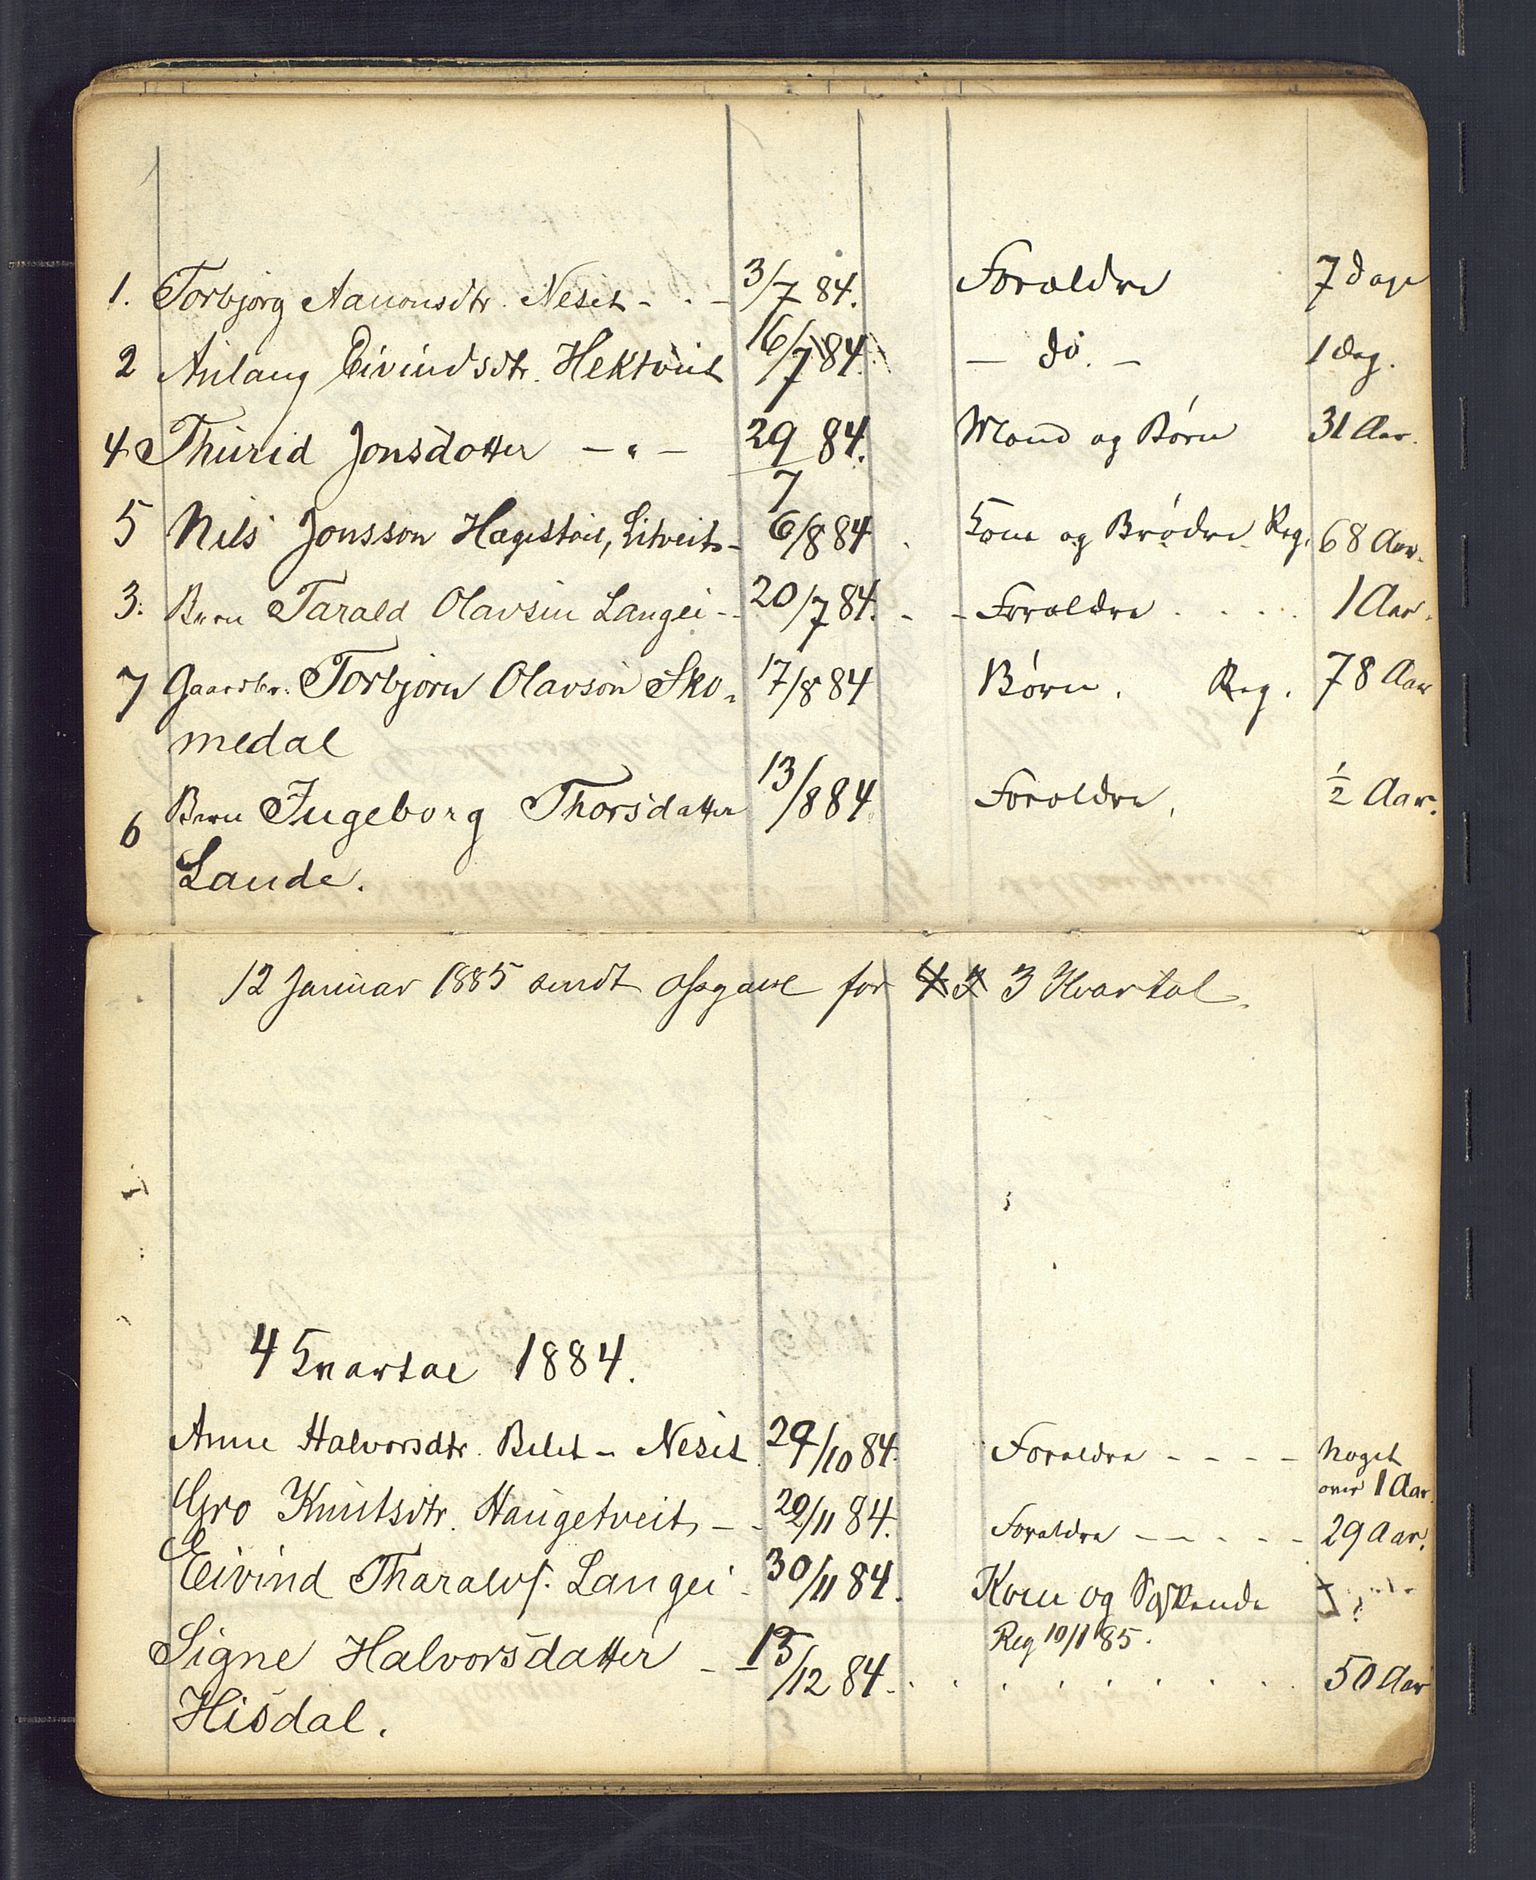 1. Torbjørg Aanonsdtr. Neset - . - 3/7 84. Forældre 7 dage
2 Aslaug Eivindsdtr. Hektveit 16/7 84. — do. — 1 dag.
4 Thurid Jonsdotter — " — 29/7 84. Mand og Børn 31 Aar.
5 Nils Jonsson Hægestøil, Litveit - 6/8 84 . Kone og Brødre Reg. 68 Aar.
3. Barn Tarald Olavsen Langei - 20/7 84. - - Forældre . . . . 1 Aar.
7 Gaardbr. Torbjørn Olavson Sko- 17/8 84 Børn. Reg. 78 Aar
medal
6 Barn Ingeborg Thorsdatter 13/8 84 Forældre. 1/2 Aar.
Lande.
12 Januar 1885 sendt opgave for 3 Kvartal.
4 Kvartal 1884.
Anne Halvorsdtr. Belet - Neset 29/10 84. Forældre - - - - Noget
over 1 Aar.
Gro Knutsdtr. Haugetveit - - 29/11 84. Forældre - - - - - 29 Aar.
Eivind Tharalds. Langei - 30/11 84. Kone og Søskende
Reg 10/1 85.
Signe Halvorsdatter - - 15/12 84 . . . . . . . . 50 Aar
Hisdal.